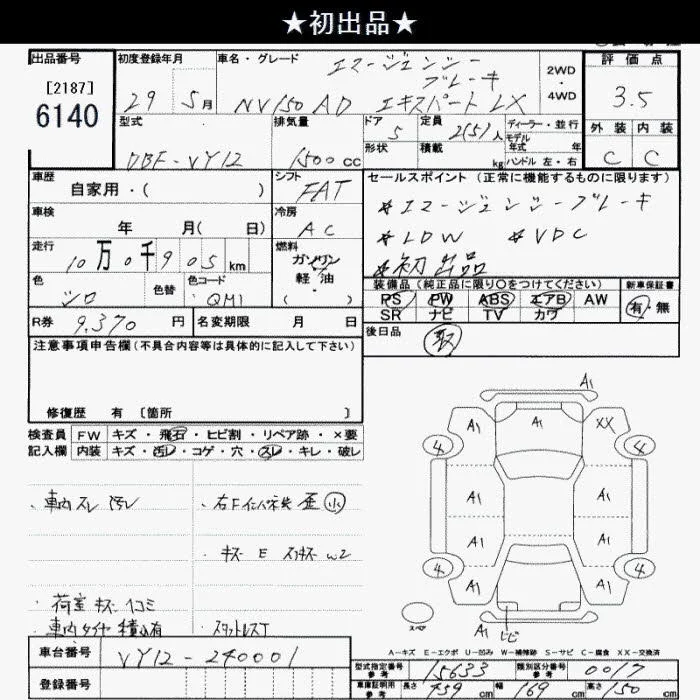 ★初出品★
出品番号
[2187]
6140
初度登録年月
29 5月
車名・グレード
エマージェンシー
ブレーキ
NV150 AD エキスパート LX
2WD
・
4WD
評価点
3.5
外装 内装
C C
型式
DBF-VY12
排気量
1500cc
ドア
5
形状
定員
2(5)人
積載
kg
ディーラー・並行
モデル
年式 年
ハンドル 左・右
車歴
自家用・( )
シフト
FAT
セールスポイント(正常に機能するものに限ります)
*エマージェンシーブレーキ
*LDW *VDC
*初出品
車検
年 月( 日)
冷房
AC
走行
10万0千905km
燃料
ガソリン
軽油
・
( )
色
シロ
色替
色コード
QM1
装備品(純正品に限り○をつけてください)
PS PW ABS エアB AW
SR ナビ TV カワ
新車保証書
有・無
R券 9,370円
名変期限 月 日
後日品
取
注意事項申告欄(不具合内容等は具体的に記入して下さい)
修復歴 有 〔箇所 〕
検査員
記入欄
FW キズ・飛石・ヒビ割・リペア跡・×要
内装 キズ・汚レ・コゲ・穴・スレ・キレ・破レ
・車内スレ 汚レ
・右Fインパネ歪 小
・キズ E スリキズ w2
・荷室キズ ヘコミ
・車内タイヤ積ミ有
・スタットレスT
A1
A1
XX
A1
4
4
A1
A1
A1
A1
4
4
A1
A1
スペア
A1
ヒビ
A-キズ E-エクボ U-凹み W-補修跡 S-サビ C-腐食 XX-交換済
車台番号 VY12-240001
登録番号
型式指定番号
参考
15633
類別区分番号
参考
0017
車庫証明用
参考
長さ 439cm
幅 169cm
高さ 150cm